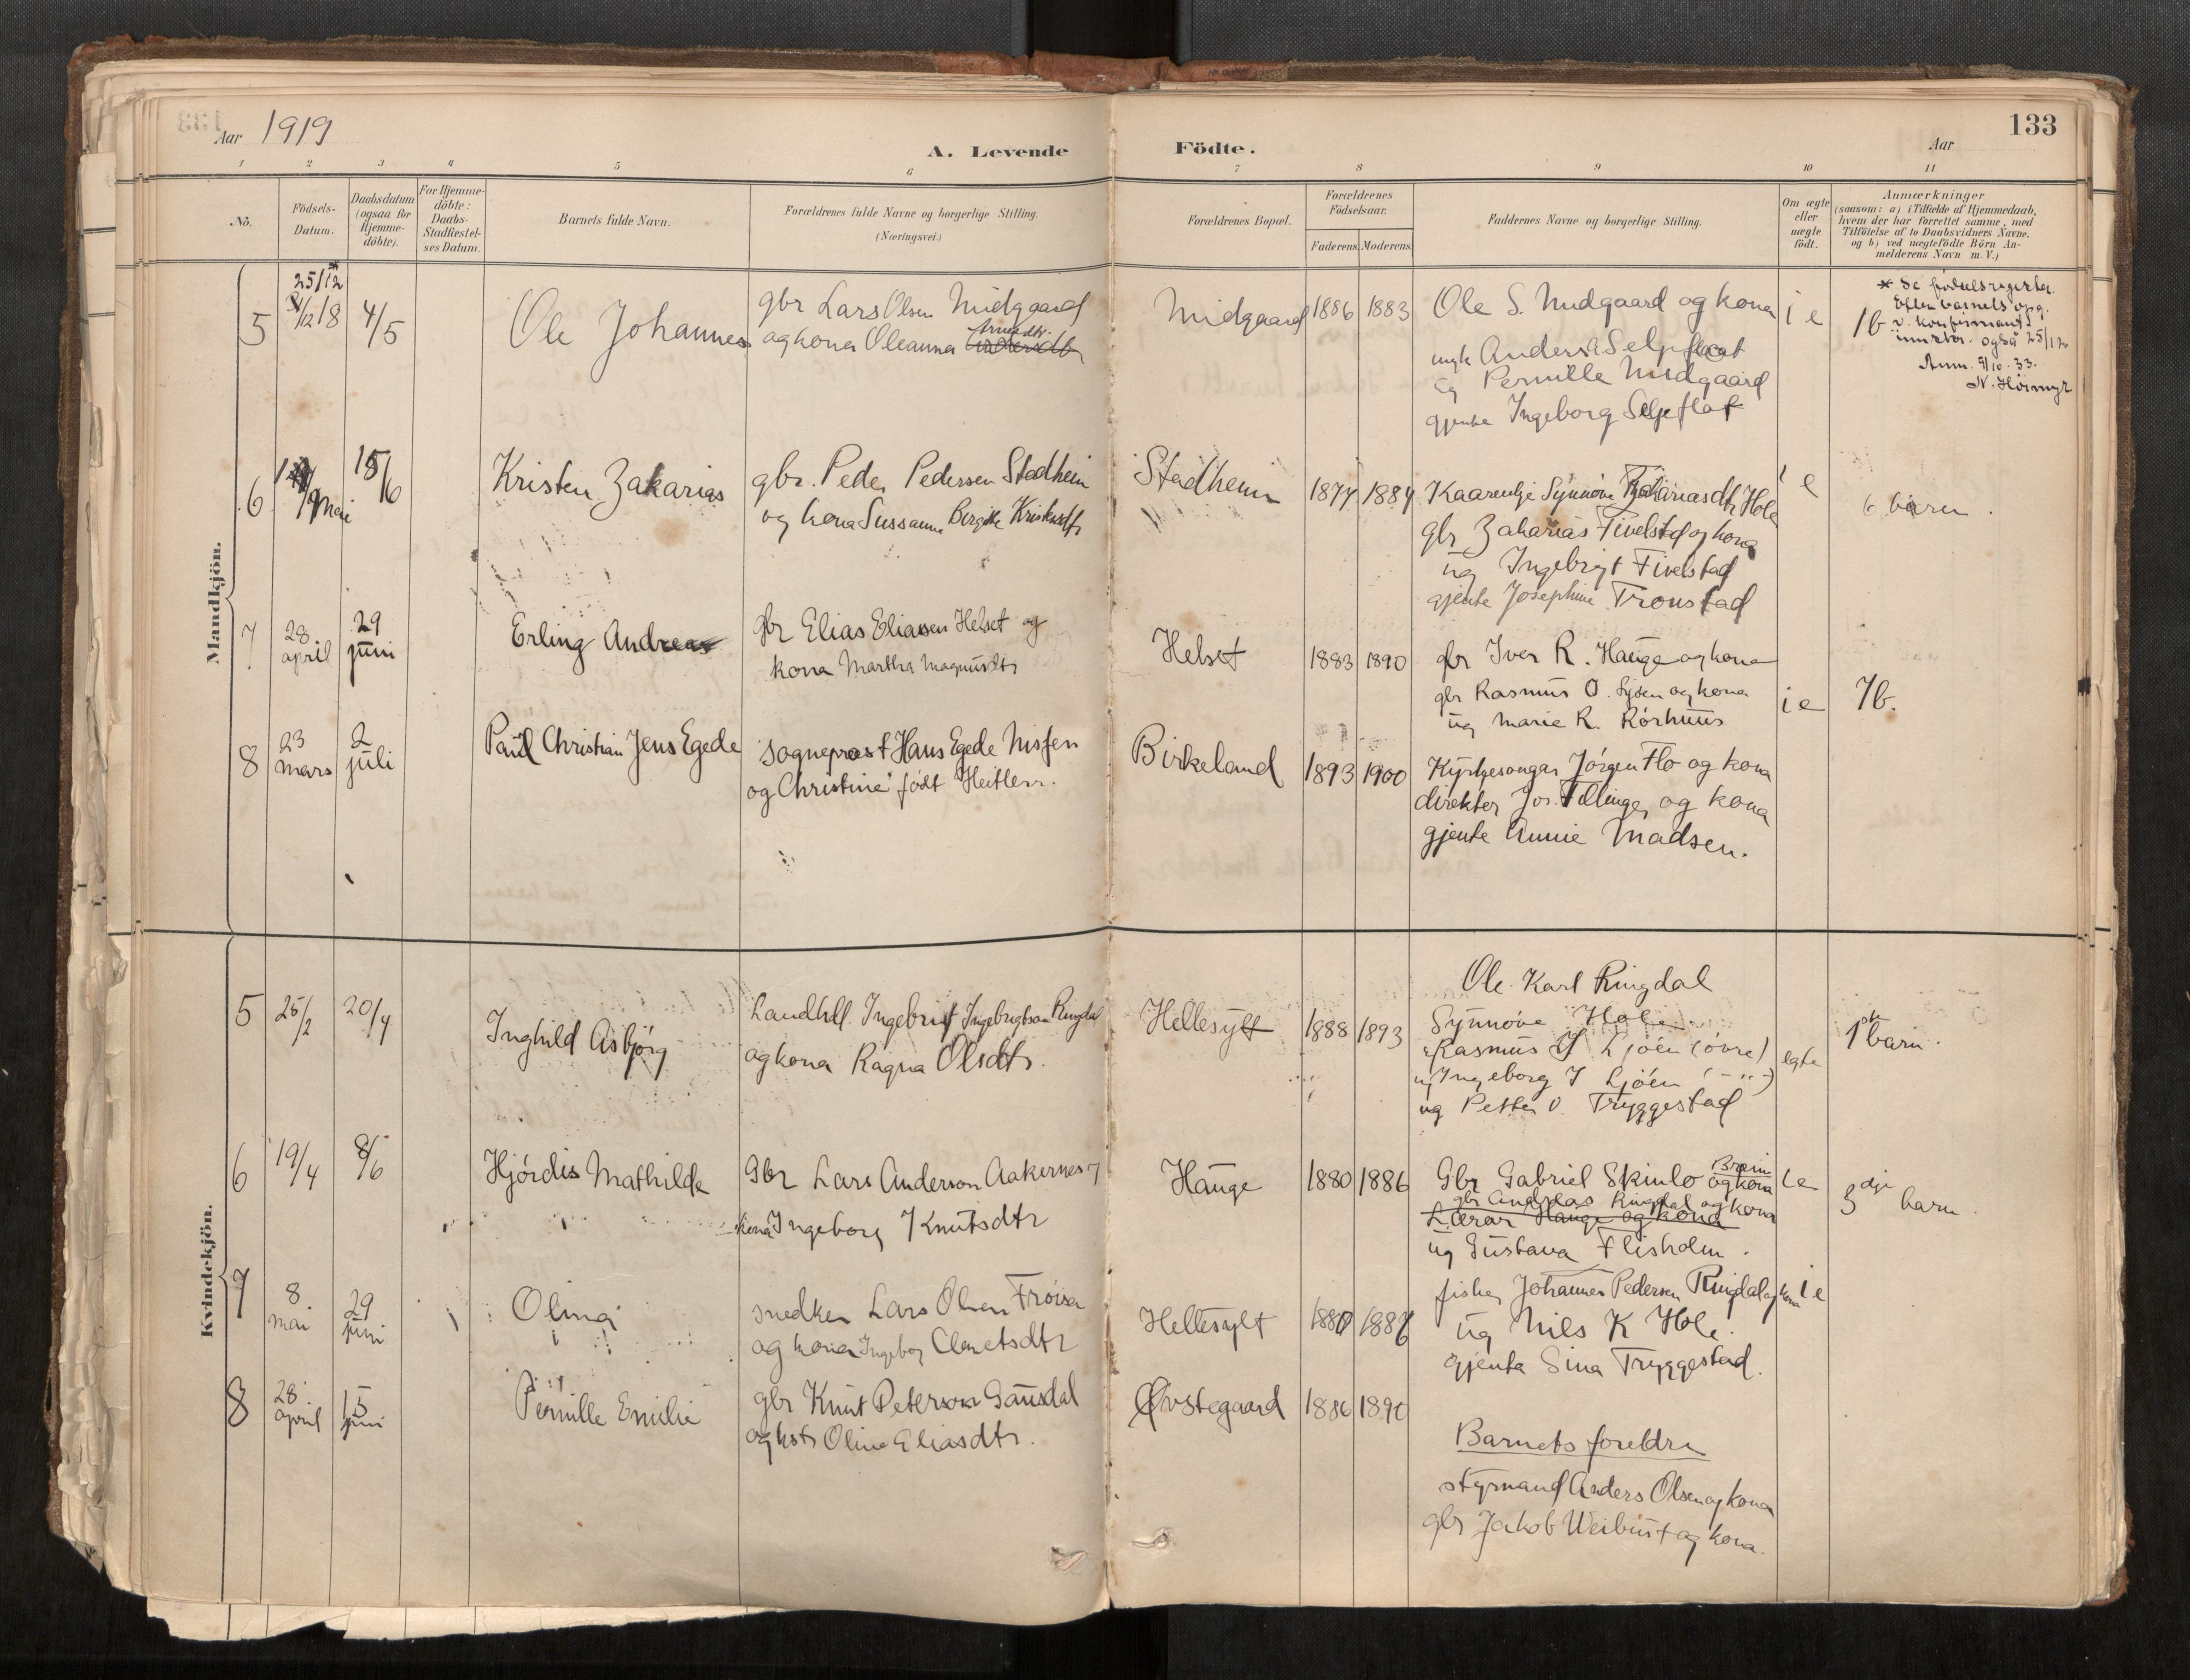 Aar 1919
A. Levende Födte.
Aar
133
1 2 3 4 5 6 7 8 9 10 11
No.
Födsels-
Datum.
Daabsdatum
(ogsaa for
Hjemme-
döbte).
For Hjemme-
döbte:
Daabs-
Stadfæstel-
ses Datum.
Barnets fulde Navn.
Forældrenes fulde Navne og borgerlige Stilling.
(Næringsvei.)
Forældrenes Bopæl.
Forældrenes
Födselsaar.
Faderens. Moderens.
Faddernes Navne og borgerlige Stilling.
Om ægte
eller
uægte
födt.
Anmærkninger
(saasom: a) i Tilfælde af Hjemmedaab,
hvem der har forrettet samme, med
Tilföielse af to Daabsvidners Navne.
og b) ved uægtefödte Börn An-
melderens Navn m. V.)
Mandkjön.
5
25/12*
/12 18
4/5
Ole Johannes
gbr Lars Olsen Midgaard
og kona Oleanna
Midgaard
1886 1883
Ole S. Midgaard og kona
ungk Anders Seljeflot
ug Pernille Midgaard
gjenta Ingeborg Seljeflot
i e
1b
* Se fødselsregister.
Efter barnets opg.
v. konfirmant
også 25/12
Anm. 9/10.33.
N. Høimyr
6
Mai
15/6
Kristen Zakarias
gbr. Peder Pedersen Stadheim
og kona Sussanne Birgitte Kristensdtr
Stadheim
1877 1884
Synnöve Zakariasdtr Hole
gbr Zakarias Fivelstad og kona
ug Ingebrigt Fivelstad
gjente Josephine Tronstad
i e
6 barn.
7
28
april
29
juni
Erling Andreas
gbr Elias Eliasen Helset og
kona Martha Magnusdtr
Helset
1883 1890
gbr Iver R. Hauge og kona
gbr Rasmus O. Ljöen og kona
ug Marie R. Rörhuus
i e
7b.
8
23
mars
2
juli
Paul Christian Jens Egede
Sogneprest Hans Egede Nissen
og Christine født Heitlem.
Birkeland
1893 1900
Kyrkjesongar Jörgen Flo og kona
direktör Jos. Tellinge og kona
gjente Annie Madsen.
Kvindekjön.
5
25/2
20/4
Inghild Asbjörg
Landhdl. Ingebrigt Ingebrigtson Ringdal
og kona Ragna Olsdtr.
Hellesylt
1888 1893
Ole Karl Ringdal
Synnöve Hole
Rasmus I Ljöen (övre)
ug Ingeborg I Ljöen (-"-)
ug Petter O. Tryggestad
egte
1ste barn.
6
19/4
8/6
Hjördis Mathilde
Gbr Lars Anderson Aakernes og
kona Ingeborg Knutsdtr
Hauge
1880 1886
Gbr Gabriel Skinlo og kona
gbr Andreas Ringdal og kona
Lærar Hauge og kona
ug Gustava Flisholm.
i e
3dje barn.
7
8
mai
29
juni
Olina
snedker Lars Olsen Fröisa
og kona Ingeborg Clemetsdtr
Hellesylt
1880 1886
fisker Johannes Pedersen Ringdal og kona
ug Nils K Hole.
gjenta Sina Tryggestad.
i e
8
28
april
15
juni
Pernille Emilie
gbr Knut Peterson Gausdal
og hstr Oline Eliasdtr.
Øvstegaard
1886 1890
Barnets foreldre
styrmand Anders Olsen og kona
gbr Jakob Weibust og kona.